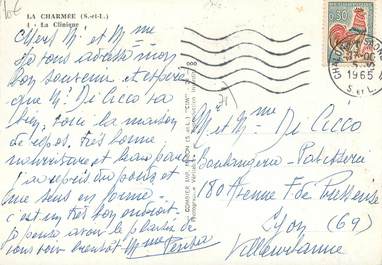 LA CHARMÉE (S.-et-L.)
1 - La Clinique
Chers Mr et Mme
Je vous adresse mon
bon souvenir et espère
que Mr Di Cicco va
bien, voici la maison
de repos. très bonne
nourriture et beau parc
j'ai repris du poids et
me sens en forme
c'est un très bon endroit
je pense avoir le plaisir de
vous voir bientôt Mme
CHALON S SAONE
1965
S. ET L.
0,30
COMBIER IMP. MACON (S.-et-L.) "CIM"
Mr et Mme Di Cicco
Boulangerie - Patisserie
180 Avenue F. de Pressensé
Lyon (69)
Villeurbanne